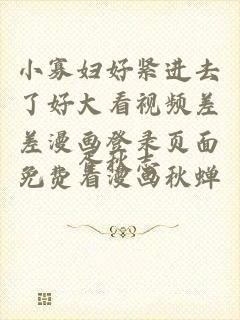 小寡妇好紧进去
了好大看视频差
差漫画登录页面
免费看漫画秋蝉